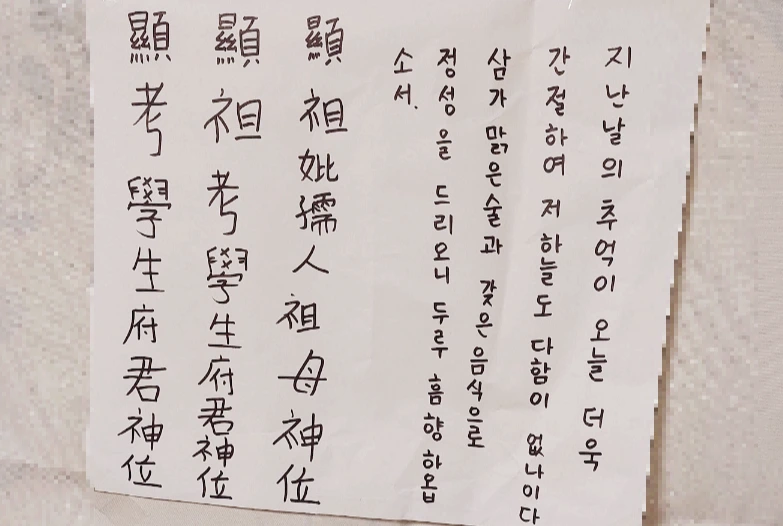 지난날의 추억이 오늘 더욱
간절하여 저 하늘도 다함이 없나이다
삼가 맑은술과 갖은음식으로
정성을 드리오니 두루 흠향하옵
소서.
顯祖妣孺人祖母神位
顯祖考學生府君神位
顯考學生府君神位